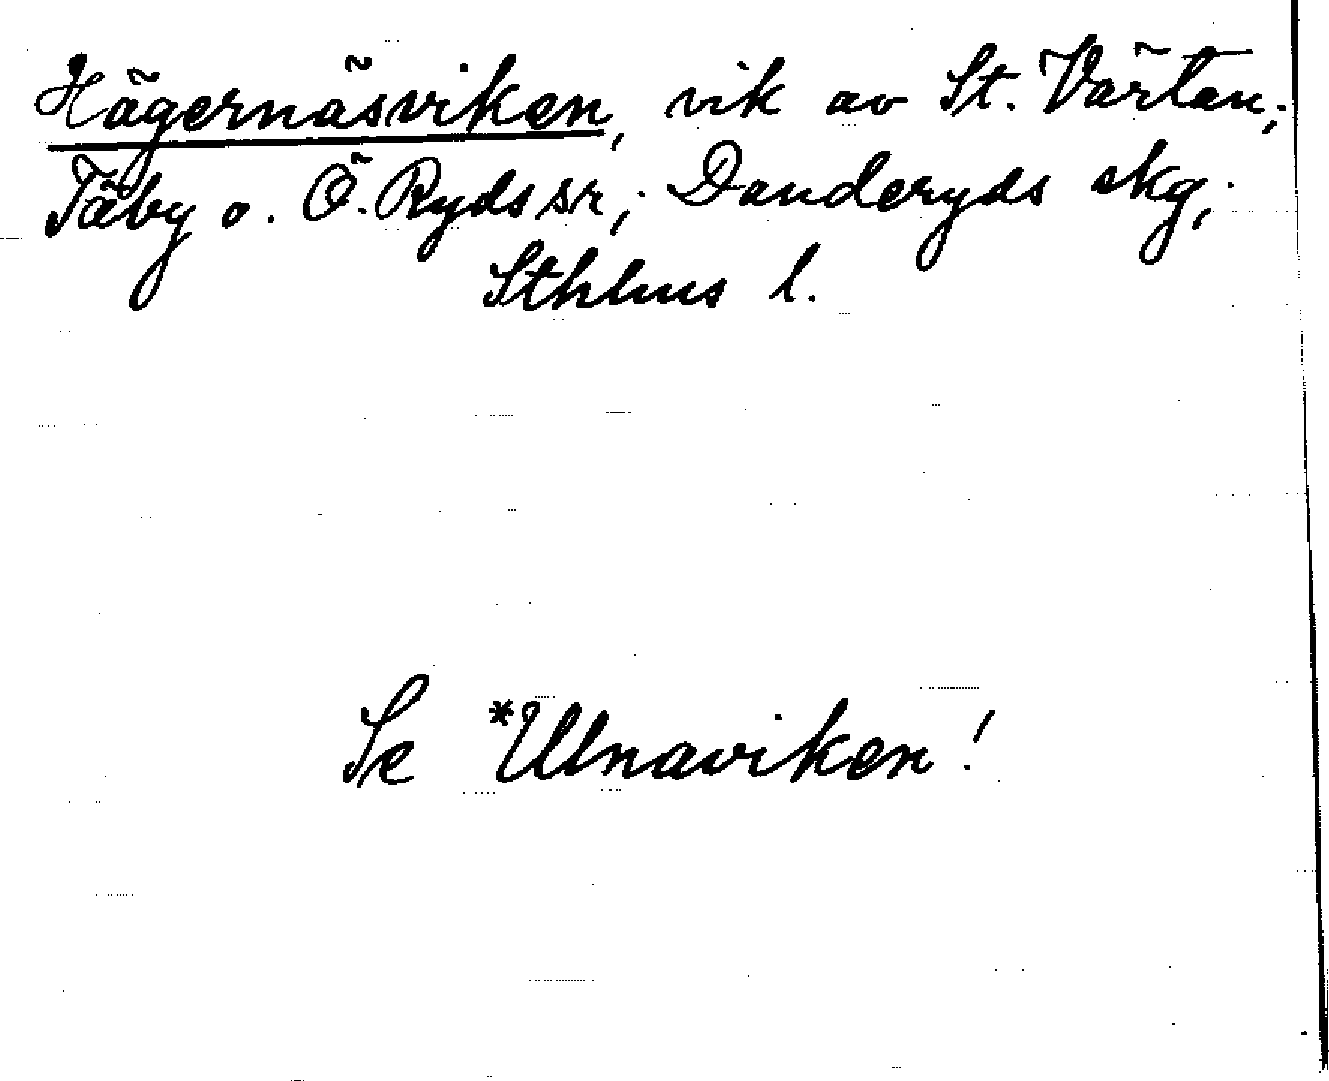 Hägernäsviken, vik av St. Värtan;
Täby o. Ö. Ryds sr; Danderyds skg;
Sthlms l.
Se *Ulnaviken!